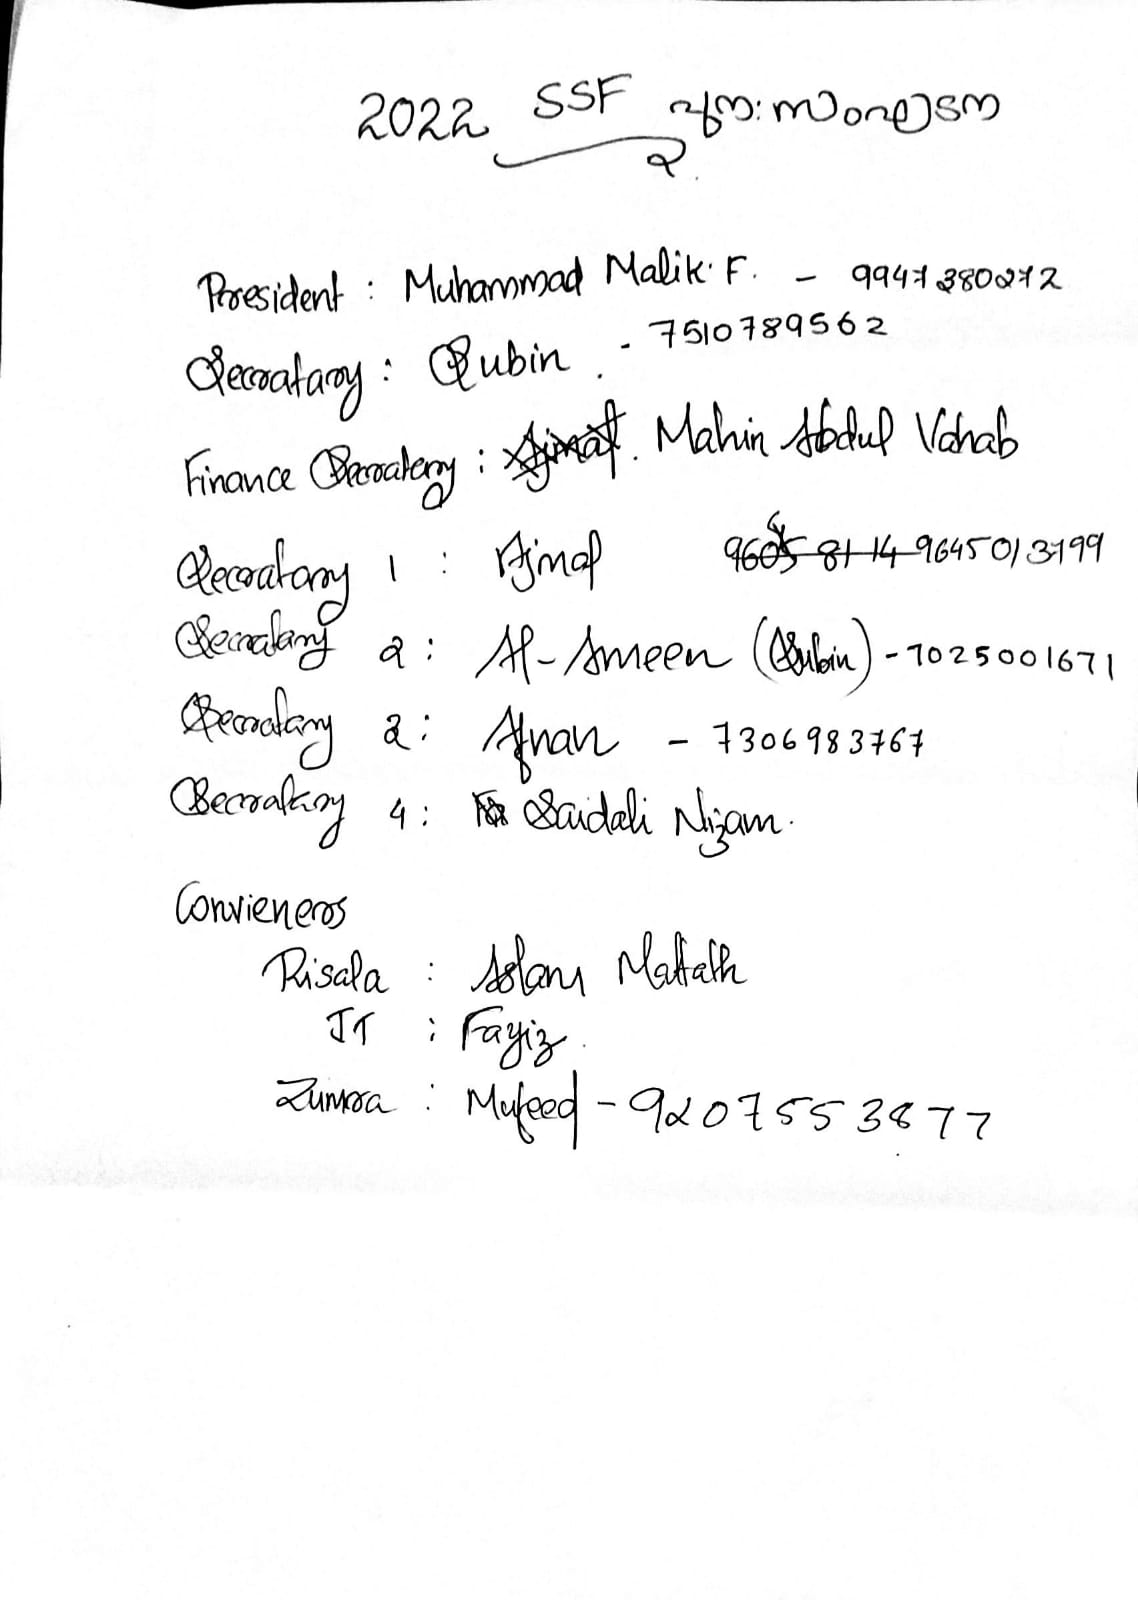 2022 SSF പുന:സംഘടന
President : Muhammad Malik. F. - 9947380272
Secratary : Subin . - 7510789562
Finance Secratery : Mahin Abdul Vahab
Secratary 1 : Ajmal 9645013799
Secratary 2 : Al-Ameen (Subin) - 7025001671
Secratary 2 : Afnan - 7306983767
Secratary 4 : Saidali Nizam.
Convieners
Risala : Aslam
JT : Fayiz.
Zumra : Mufeed - 9207553877